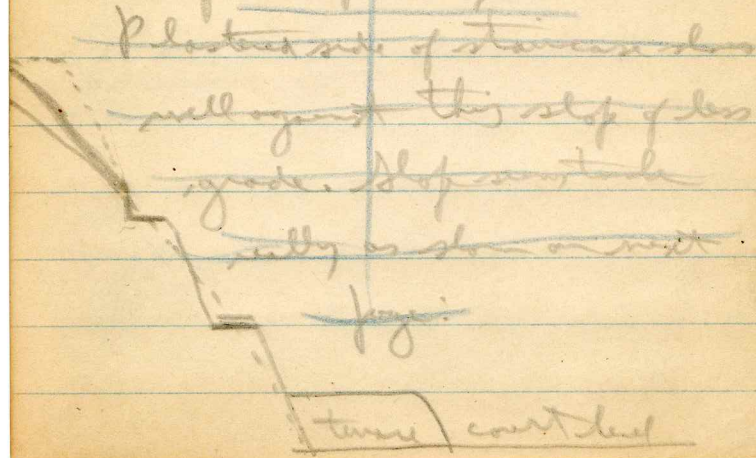 Plastered side of staircase show
well against this slop of less
grade. Slop
really as show on next
page.
terrace court level